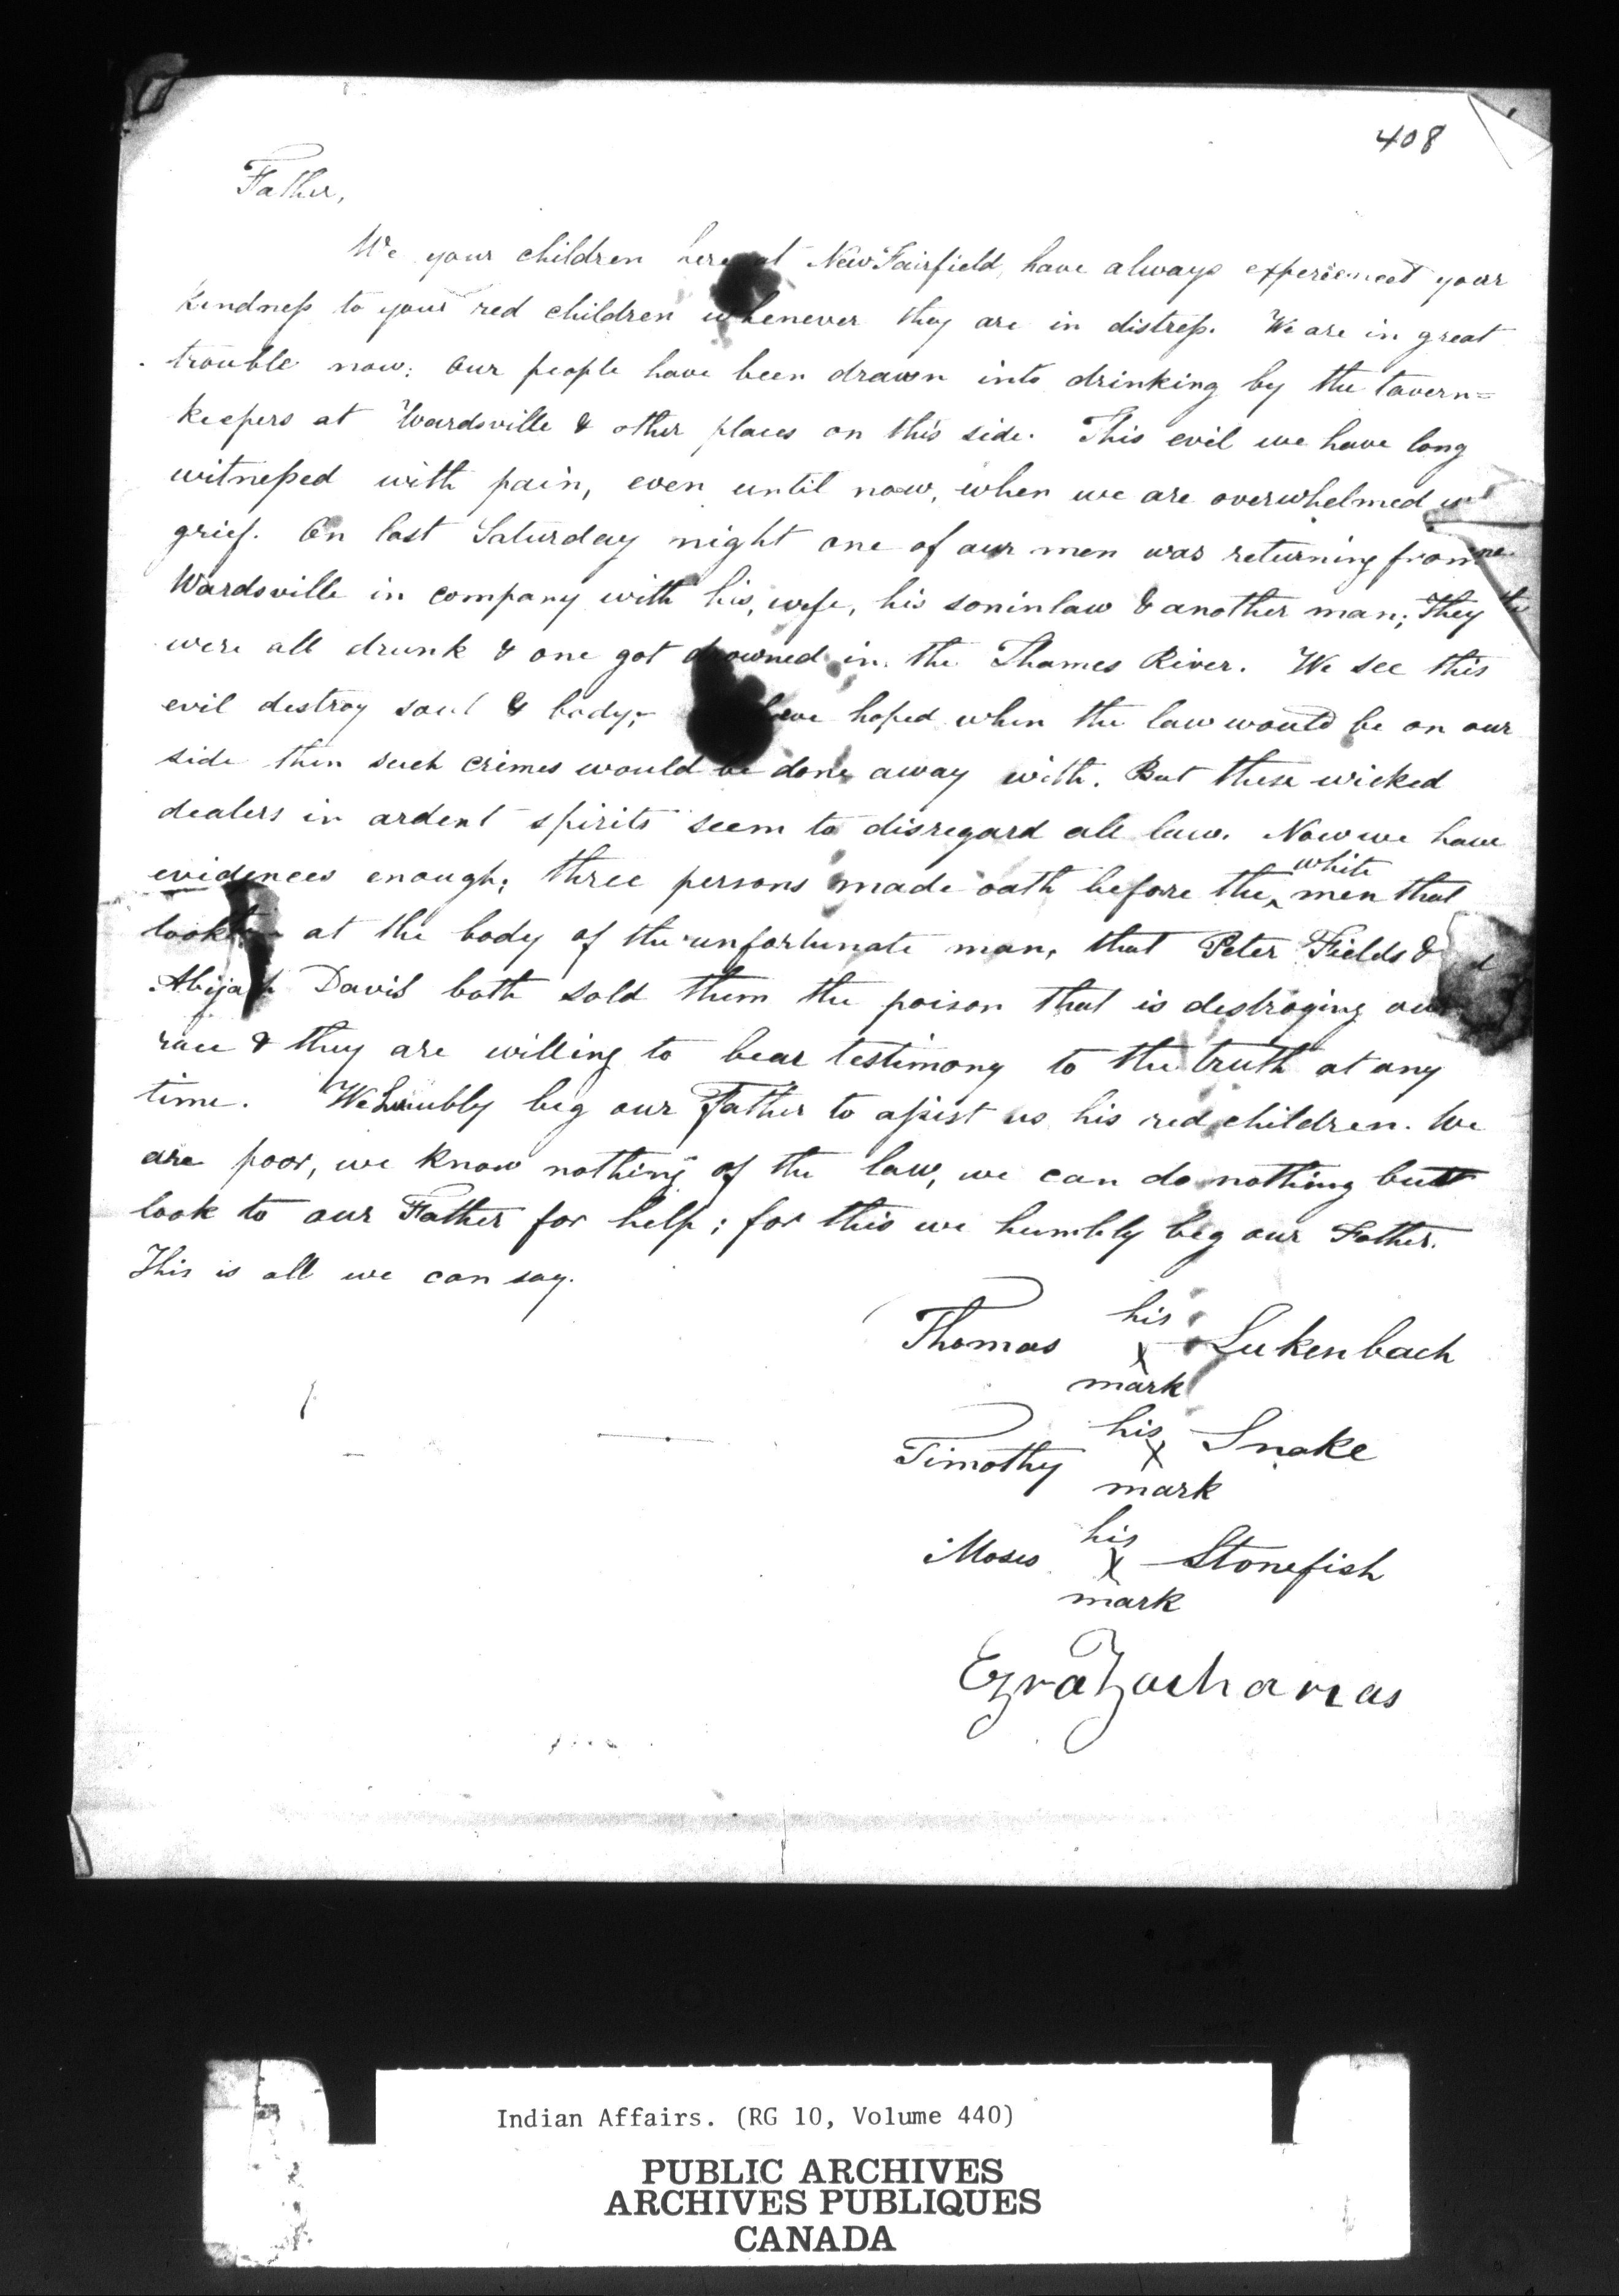 408
Father,
We your children here at New Fairfield, have always experienced your
kindness to your red children whenever they are in distress. We are in great
trouble now: our people have been drawn into drinking by the tavern=
keepers at Wardsville & other places on this side. This evil we have long
witnessed with pain, even until now, when we are overwhelmed
grief. On last Saturday night one of our men was returning from
Wardsville in company with his, wife, his soninlaw & another man; They
were all drunk & one got drowned in the Thames River. We see this
evil destroy soul & body; have hoped when the law would be on our
side then such crimes would be done away with. But these wicked
dealers in ardent spirits seem to disregard all law. Now we have
evidences enough; three persons made oath before the white men that
look at the body of the unfortunate man, that Peter Fields &
Abijah Davis both sold them the poison that is destroying our
race & they are willing to bear testimony to the truth at any
time. We humbly beg our Father to assist us his red children. We
are poor, we know nothing of the law, we can do nothing but
look to our Father for help; for this we humbly beg our Father.
This is all we can say.
Thomas his x mark Lukenbach
Timothy his x mark Snake
Moses his x mark Stonefish
Ezra Zacharias
Indian Affairs. (RG 10, Volume 440)
PUBLIC ARCHIVES
ARCHIVES PUBLIQUES
CANADA